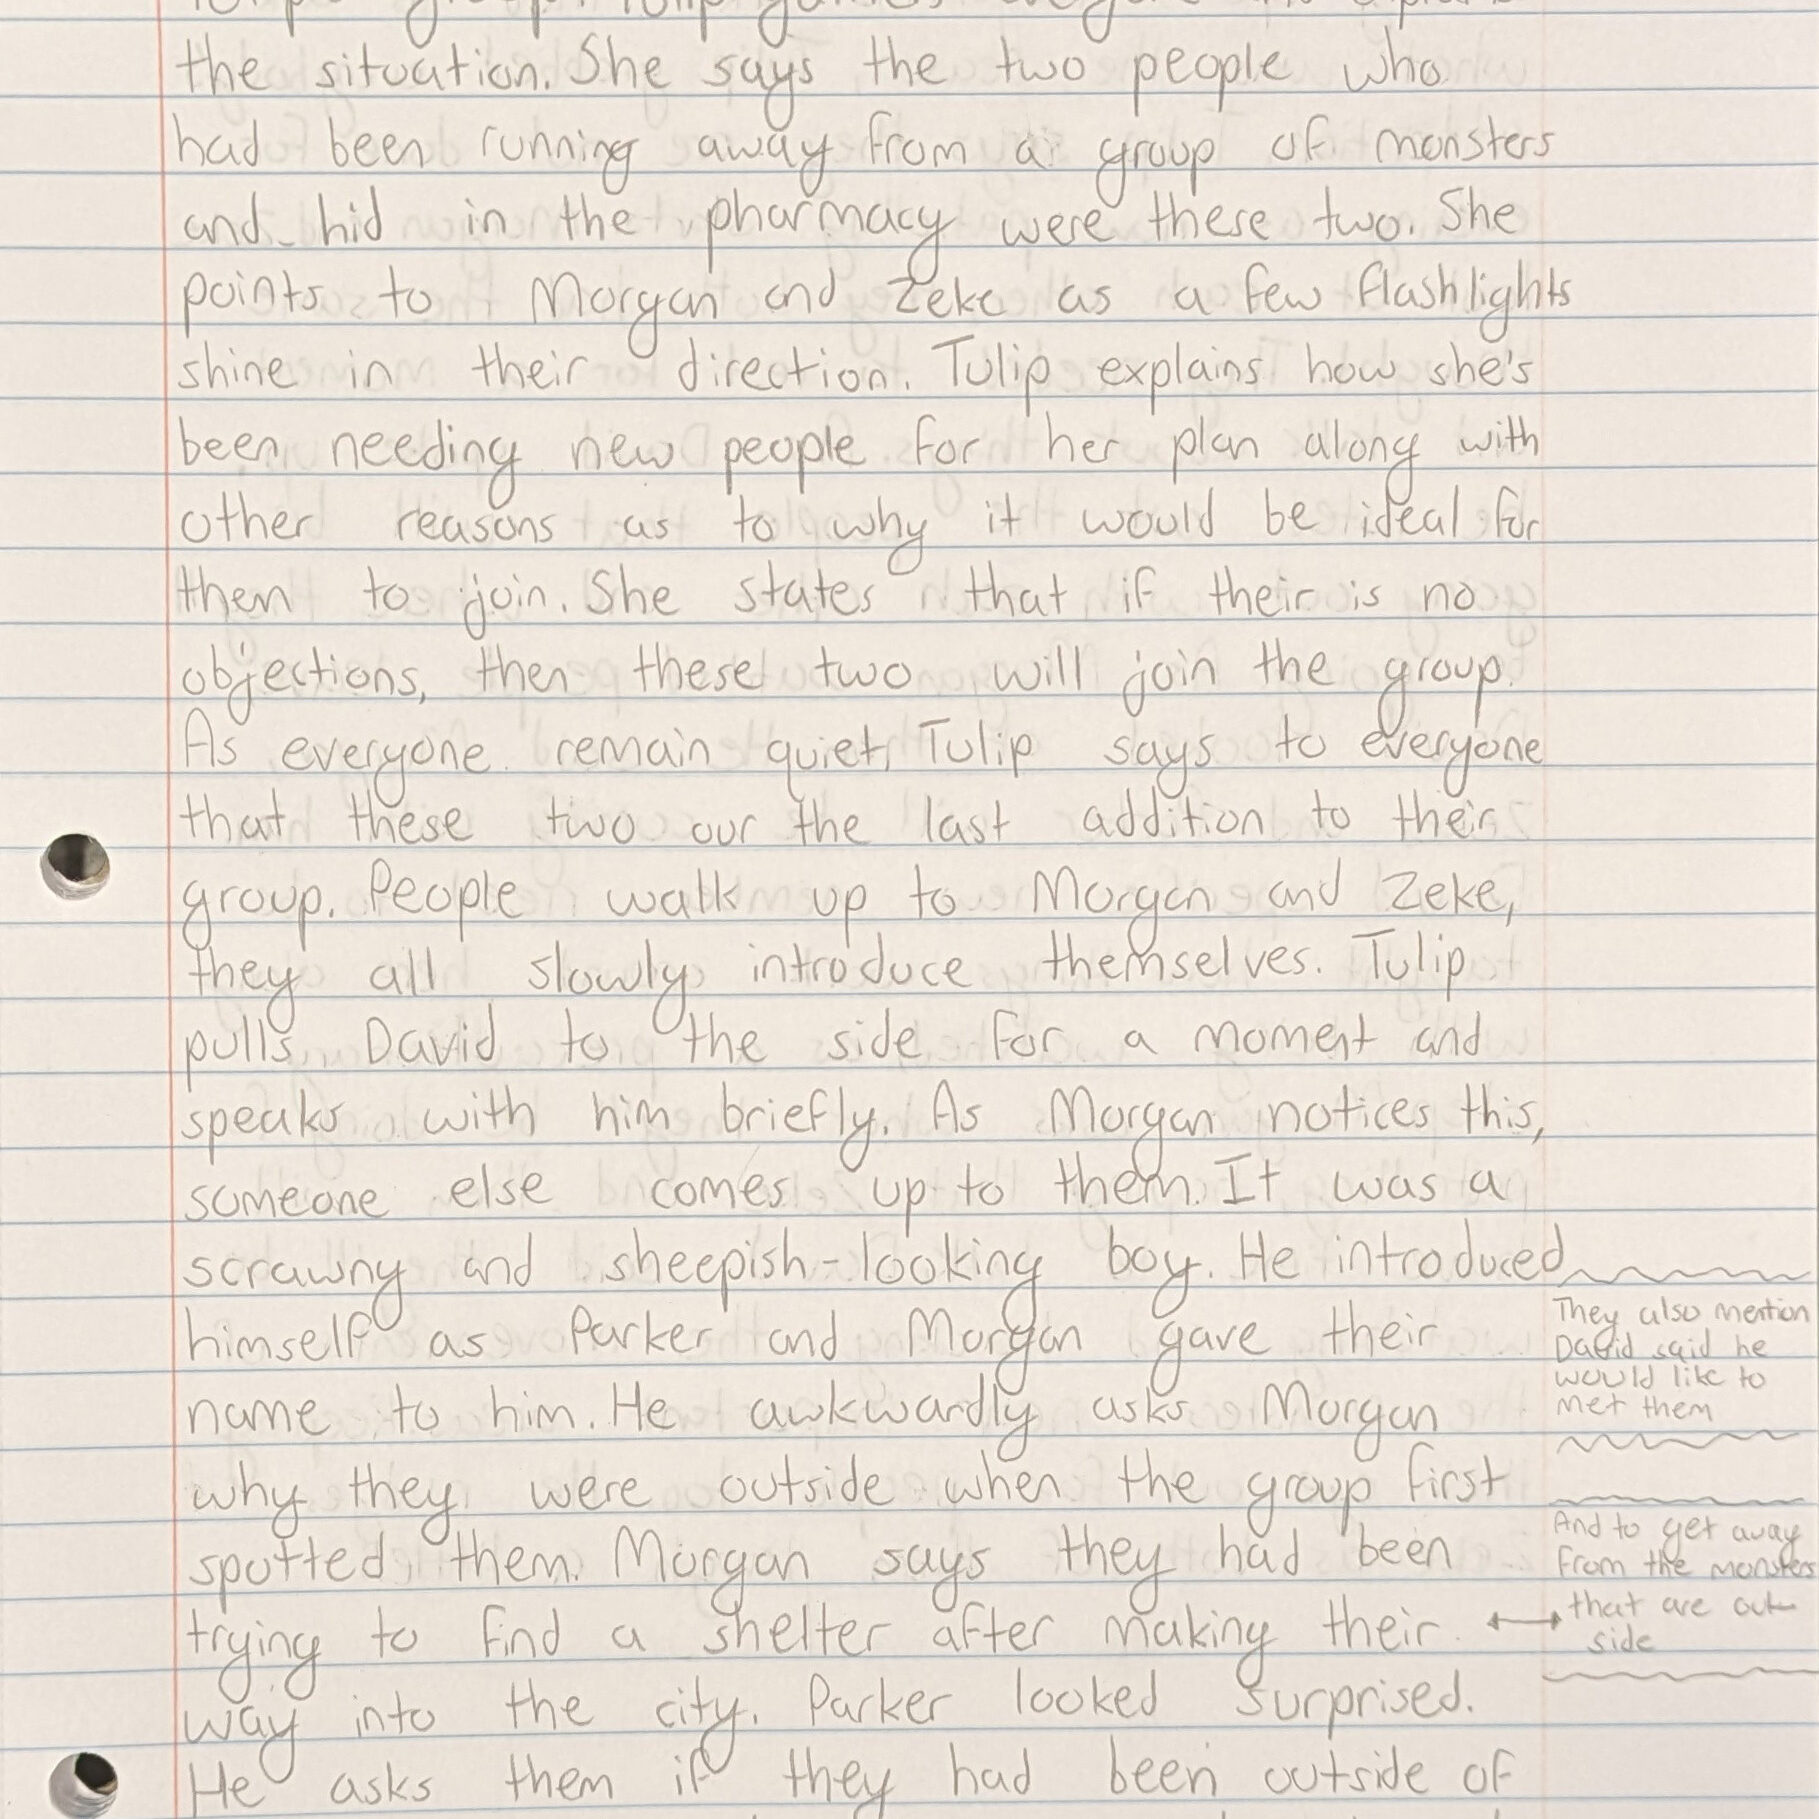 the situation. She says the two people who
had been running away from a group of monsters
and hid in the pharmacy were these two. She
points to Morgan and Zeke as a few flashlights
shine in their direction. Tulip explains how she's
been needing new people for her plan along with
other reasons as to why it would be ideal for
them to join. She states that if their is no
objections, then these two will join the group.
As everyone remain quiet, Tulip says to everyone
that these two our the last addition to their
group. People walk up to Morgan and Zeke,
they all slowly introduce themselves. Tulip
pulls David to the side for a moment and
speaks with him briefly. As Morgan notices this,
someone else comes up to them. It was a
scrawny and sheepish-looking boy. He introduced
himself as Parker and Morgan gave their
name to him. He awkwardly asks Morgan
why they were outside when the group first
spotted them. Morgan says they had been
trying to find a shelter after making their
way into the city. Parker looked surprised.
He asks them if they had been outside of
They also mention
David said he
would like to
met them
And to get away
from the monsters
that are out
side